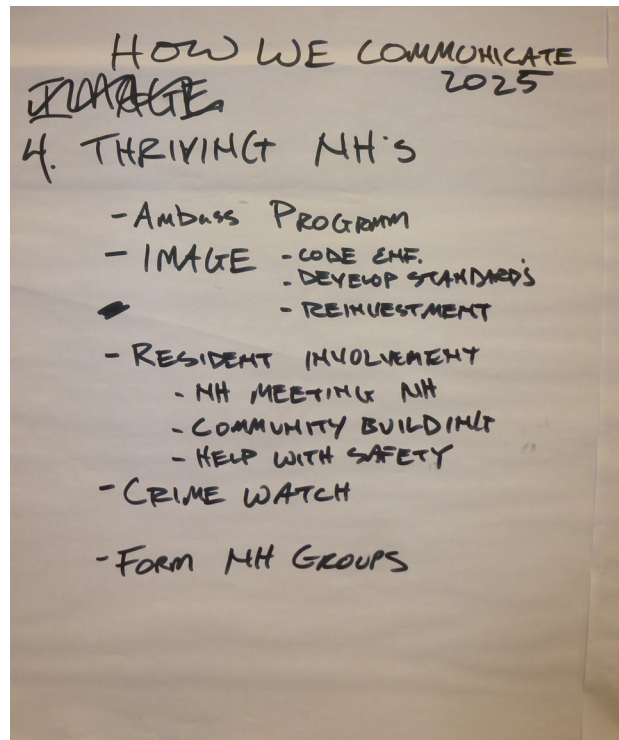 HOW WE COMMUNICATE
2025
IMAGE
4. THRIVING NH'S
- Ambass PROGRAMM
- IMAGE - CODE ENF.
- DEVELOP STANDARD'S
- REINVESTMENT
- RESIDENT INVOLVEMENT
- NH MEETING NH
- COMMUNITY BUILDING
- HELP WITH SAFETY
- CRIME WATCH
- FORM NH GROUPS